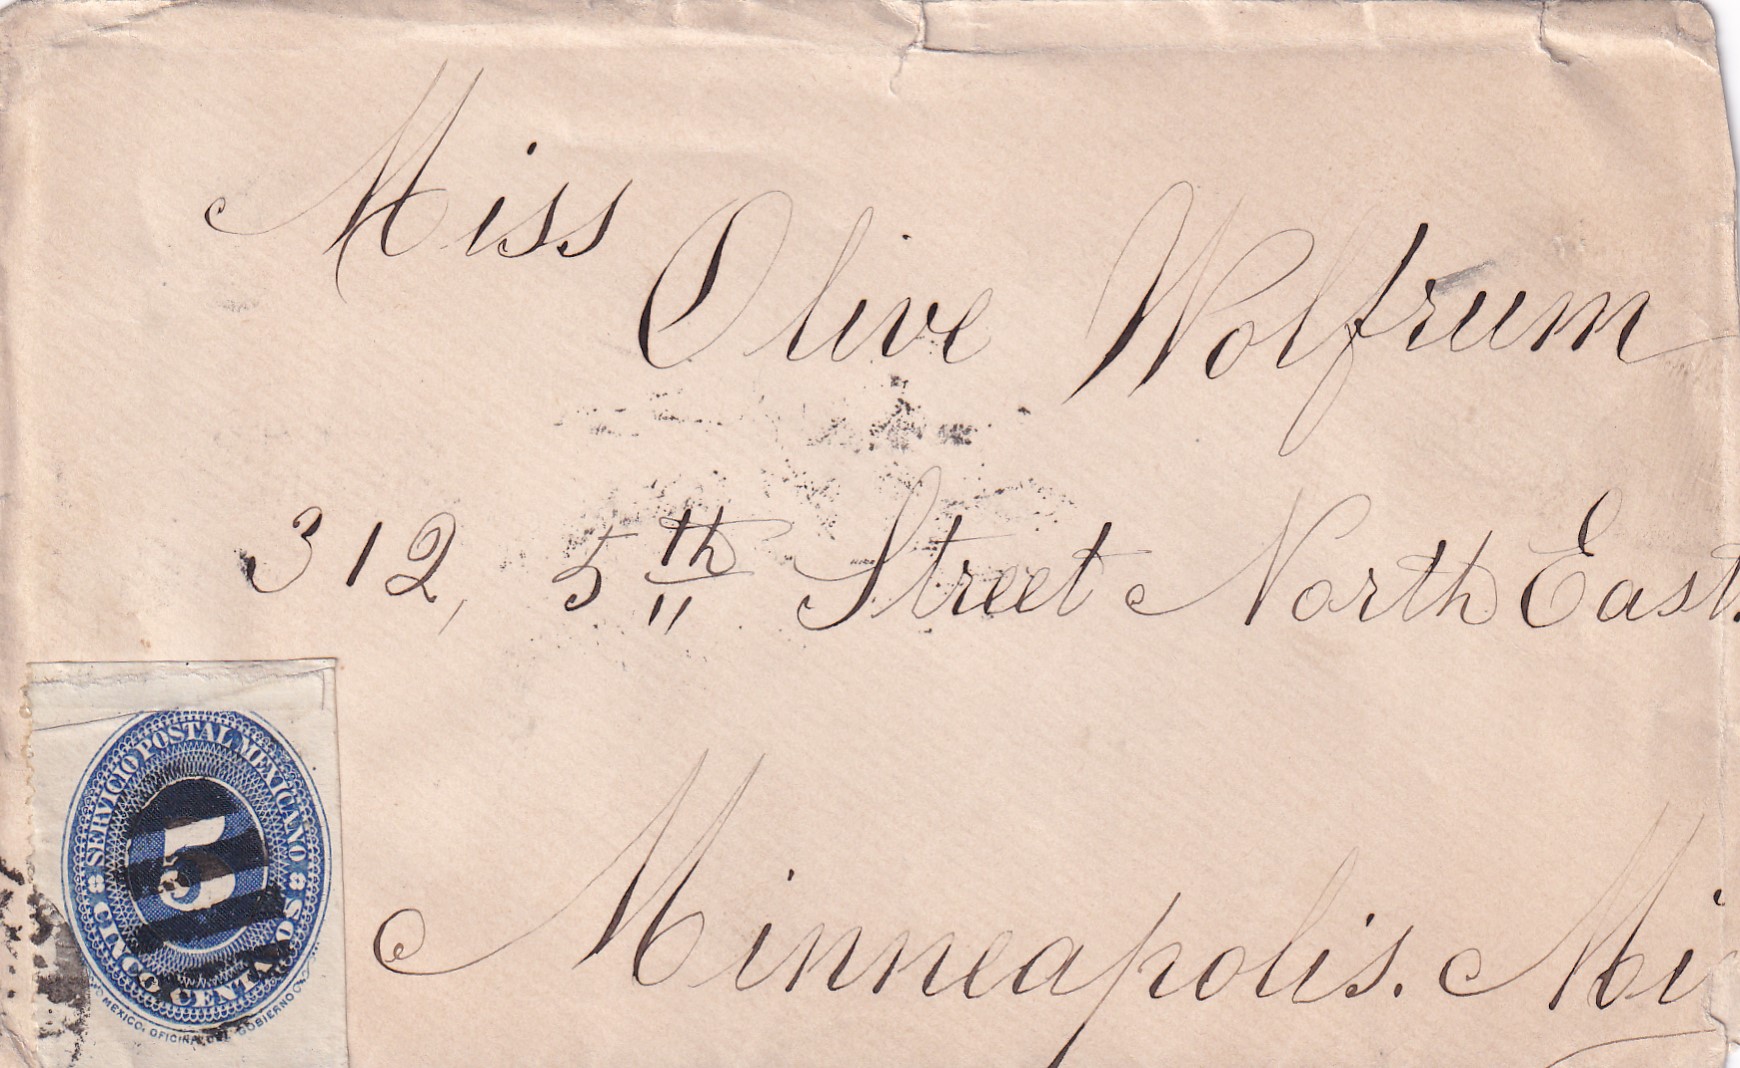 Miss
Olive Wolfrum
312, 5th Street North East.
Minneapolis. Mi
SERVICIO POSTAL MEXICANO
5
CINCO CENTAVOS
MEXICO. OFICINA DEL GOBIERNO